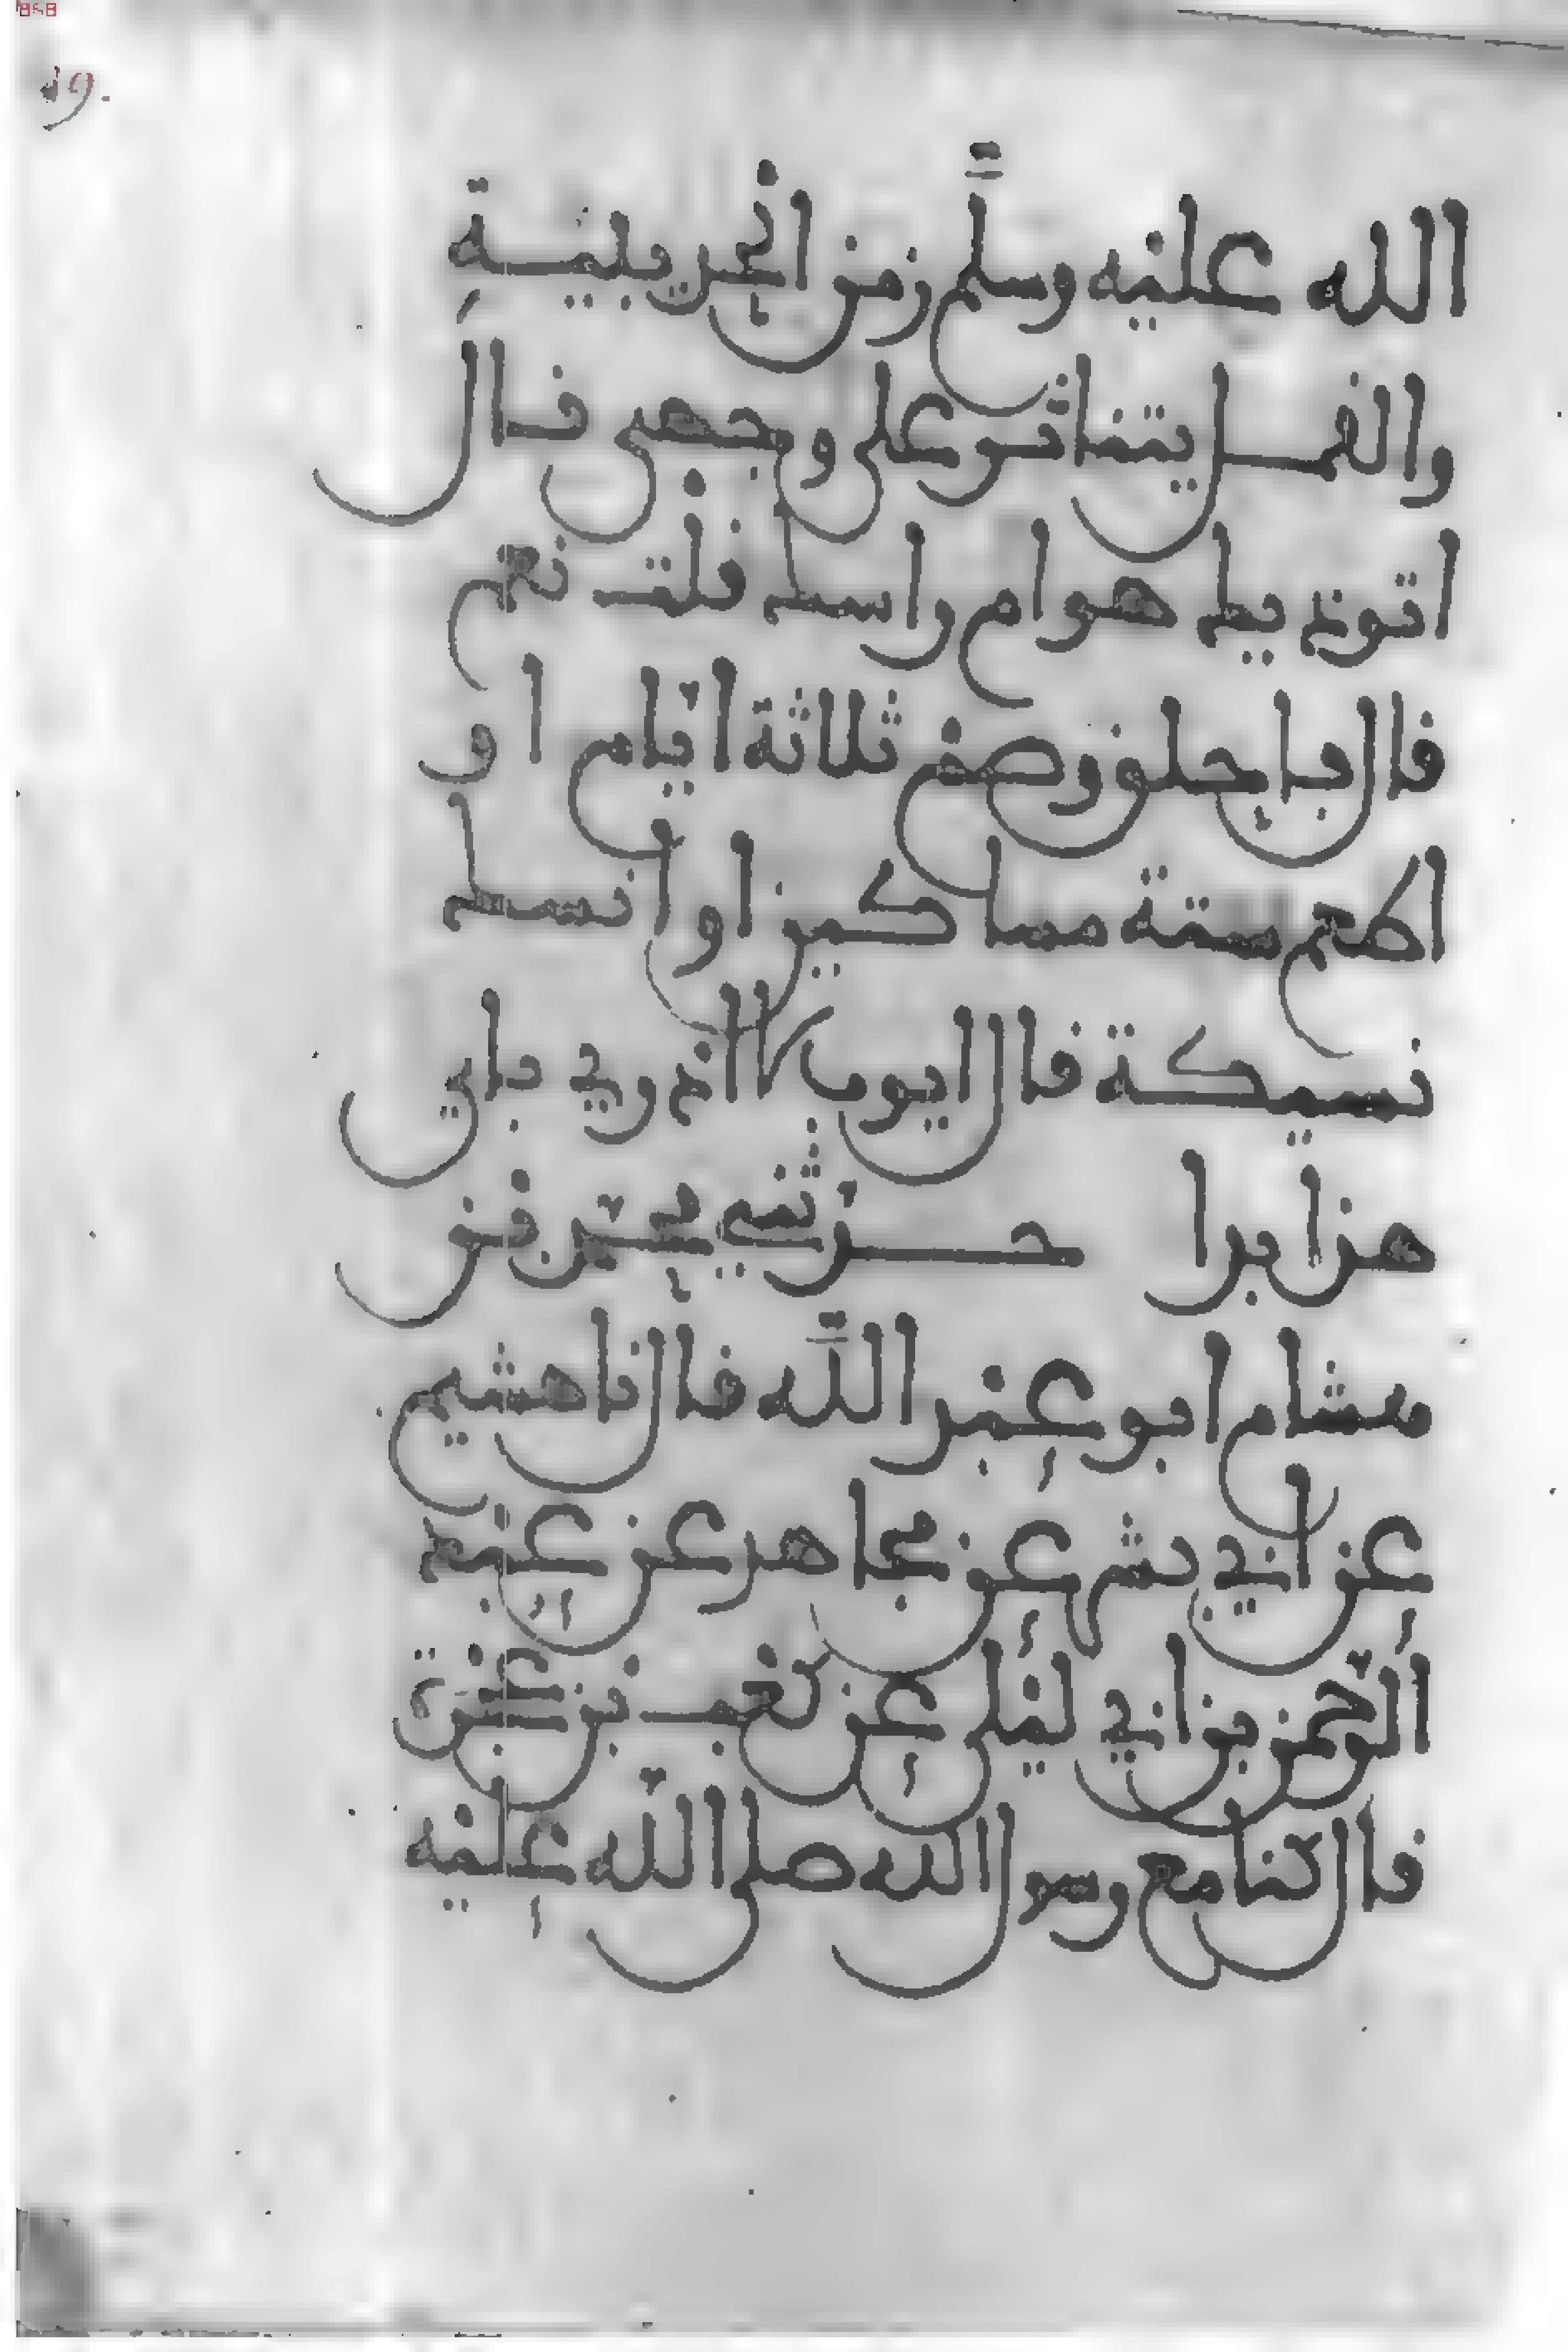 19.
الله عليه وسلم زمن الحديبية
والقمل يتناثر على وجهي قال
اتوذيك هوام راسك قلت نعم
قال فاحلق وصم ثلاثة ايام او
اطعم ستة مساكين او انسك
نسيكة قال ايوب لا ادري باي
هذا بدا حدثني محمد بن
هشام ابو عبد الله قال نا هشيم
عن ابي بشر عن مجاهد عن عبد
الرحمن بن ابي ليلى عن كعب بن عجرة
قال كنا مع رسول الله صلى الله عليه